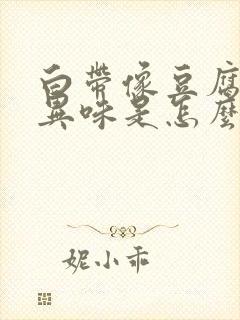 白帶像豆腐
異味是怎麼
妮小乖